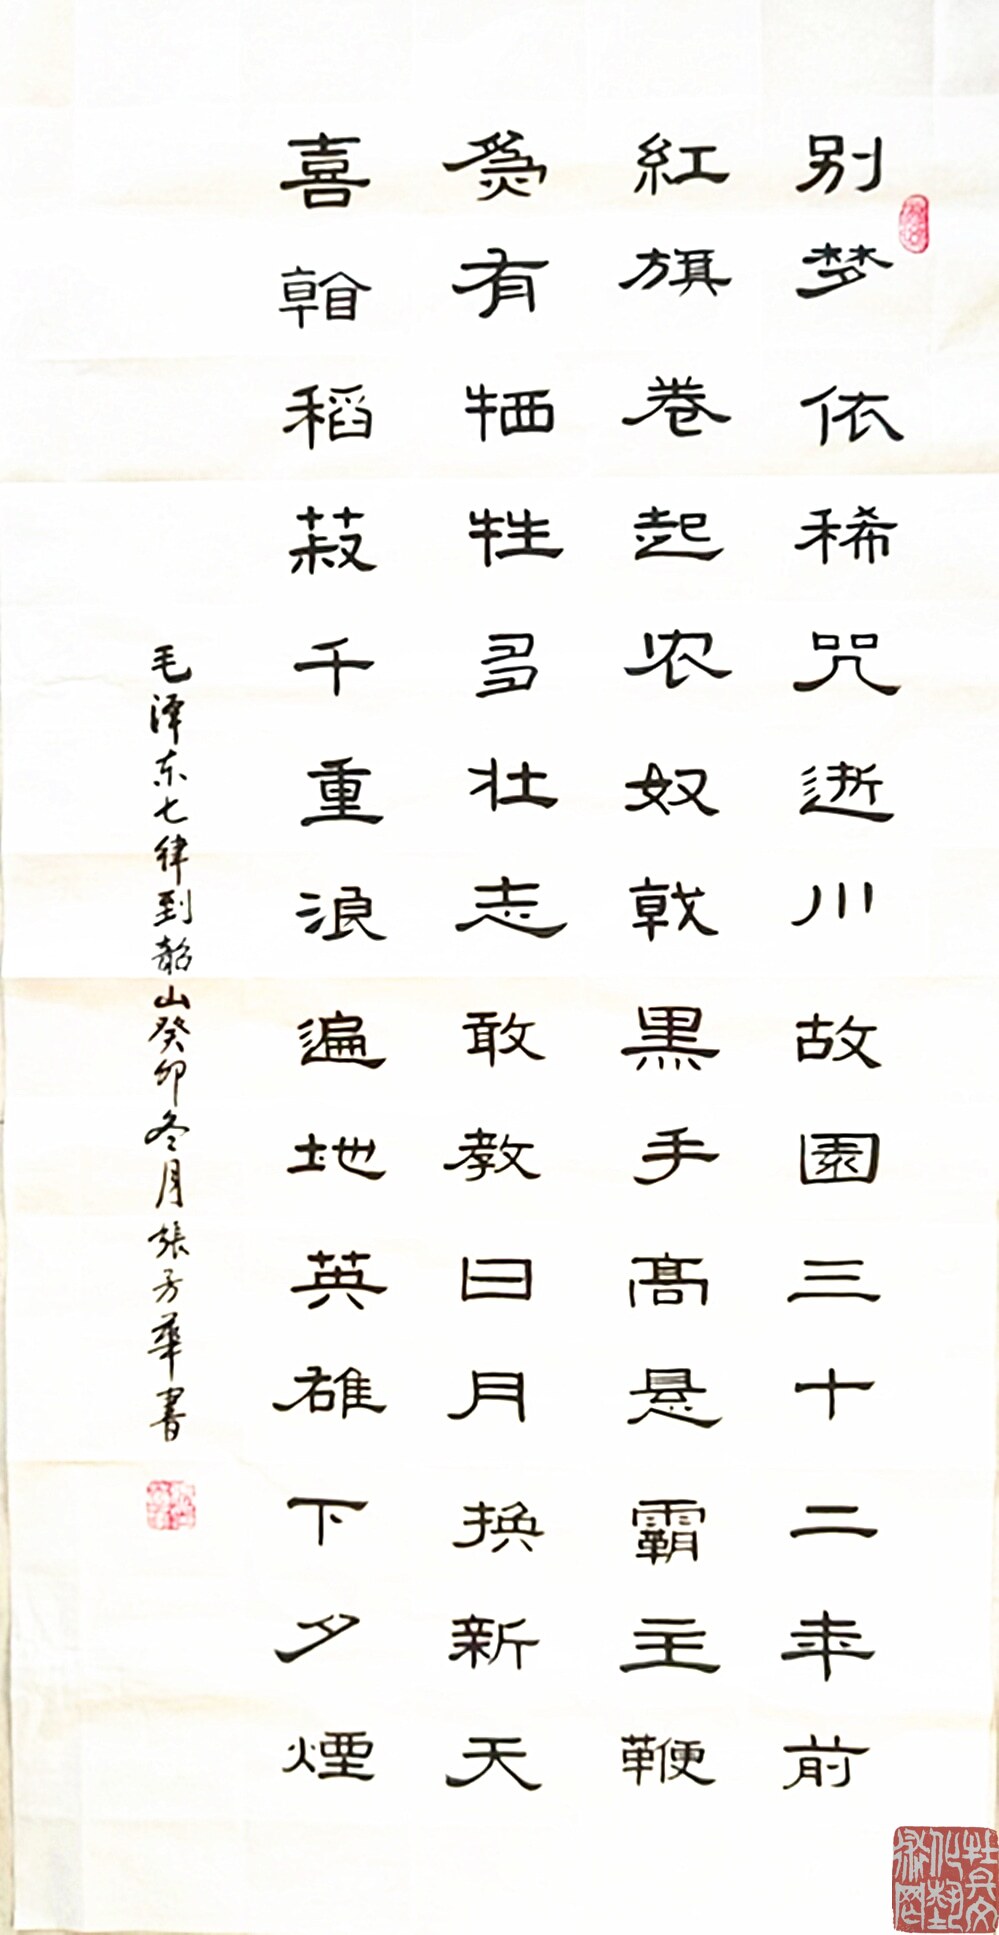 别梦依稀咒逝川故園三十二年前
紅旗卷起农奴戟黑手髙悬霸主鞭
為有牺牲多壮志敢教日月换新天
喜看稻菽千重浪遍地英雄下夕煙
毛泽东七律到韶山癸卯冬月張方華書